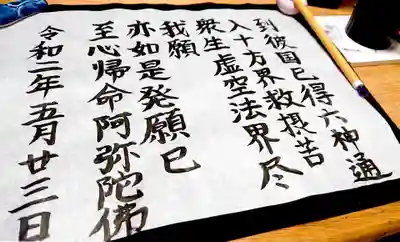 到彼国已得六神通
入十方界救摂苦
衆生虚空法界尽
我願
亦如是発願已
至心帰命阿弥陀佛
令和二年五月廿三日